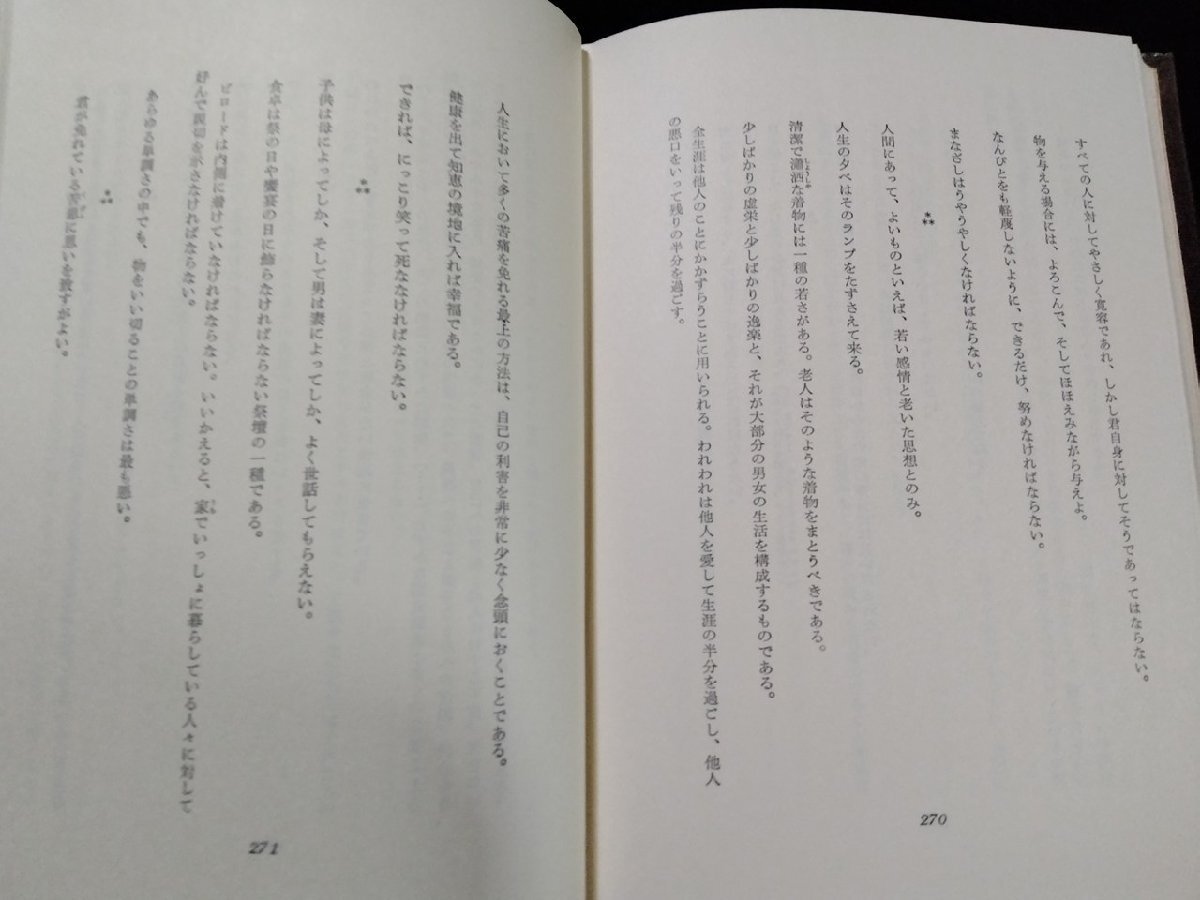 すべての人に対してやさしく寛容であれ、しかし君自身に対してそうであってはならない。
物を与える場合には、よろこんで、そしてほほえみながら与えよ。
なんぴとをも軽蔑しないように、できるだけ、努めなければならない。
まなざしはうやうやしくなければならない。
***
人間にあって、よいものといえば、若い感情と老いた思想とのみ。
人生の夕べはそのランプをたずさえて来る。
清潔で瀟洒な着物には一種の若さがある。老人はそのような着物をまとうべきである。
しょうしゃ
少しばかりの虚栄と少しばかりの逸楽と、それが大部分の男女の生活を構成するものである。
全生涯は他人のことにかかずらうことに用いられる。われわれは他人を愛して生涯の半分を過ごし、他人
の悪口をいって残りの半分を過ごす。
270
人生において多くの苦痛を免れる最上の方法は、自己の利害を非常に少なく念頭におくことである。
健康を出て知恵の境地に入れば幸福である。
できれば、にっこり笑って死ななければならない。
***
子供は母によってしか、そして男は妻によってしか、よく世話してもらえない。
食卓は祭の日や饗宴の日に飾らなければならない祭壇の一種である。
ビロードは内側に着けていなければならない。いいかえると、家でいっしょに暮らしている人々に対して
好んで親切を示さなければならない。
あらゆる単調さの中でも、物をいい切ることの単調さは最も悪い。
***
君が免れている苦悪に思いを致すがよい。
271